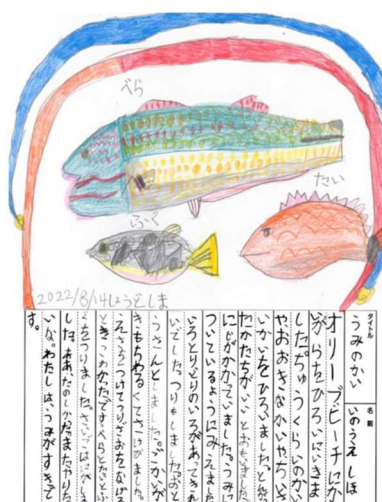 べら
たい
ふぐ
2022/8/14しょうどしま
タイトル
うみのかい
名前
いのうえ しほ
オリーブビーチにか
いがらをひろいにいきま
した。ちゅうくらいのか
やおおきなかいやちいさ
いかいをひろいました。
たかたちがいいとおもいました。
にじがかかっていました。うみ
ついているようにみえました
いろとりどりのいろがあってきれ
いでした。つりもしました。おと
うさんと しました。
きもちわるくて ました。
えさをつけてつりざおをなげ
ときこわかったです。べらとたいとふ
ぐをつりました。さいごはにがしま
した。ああ、たのしかった。またやりた
いな。わたしは、うみがすきで
す。